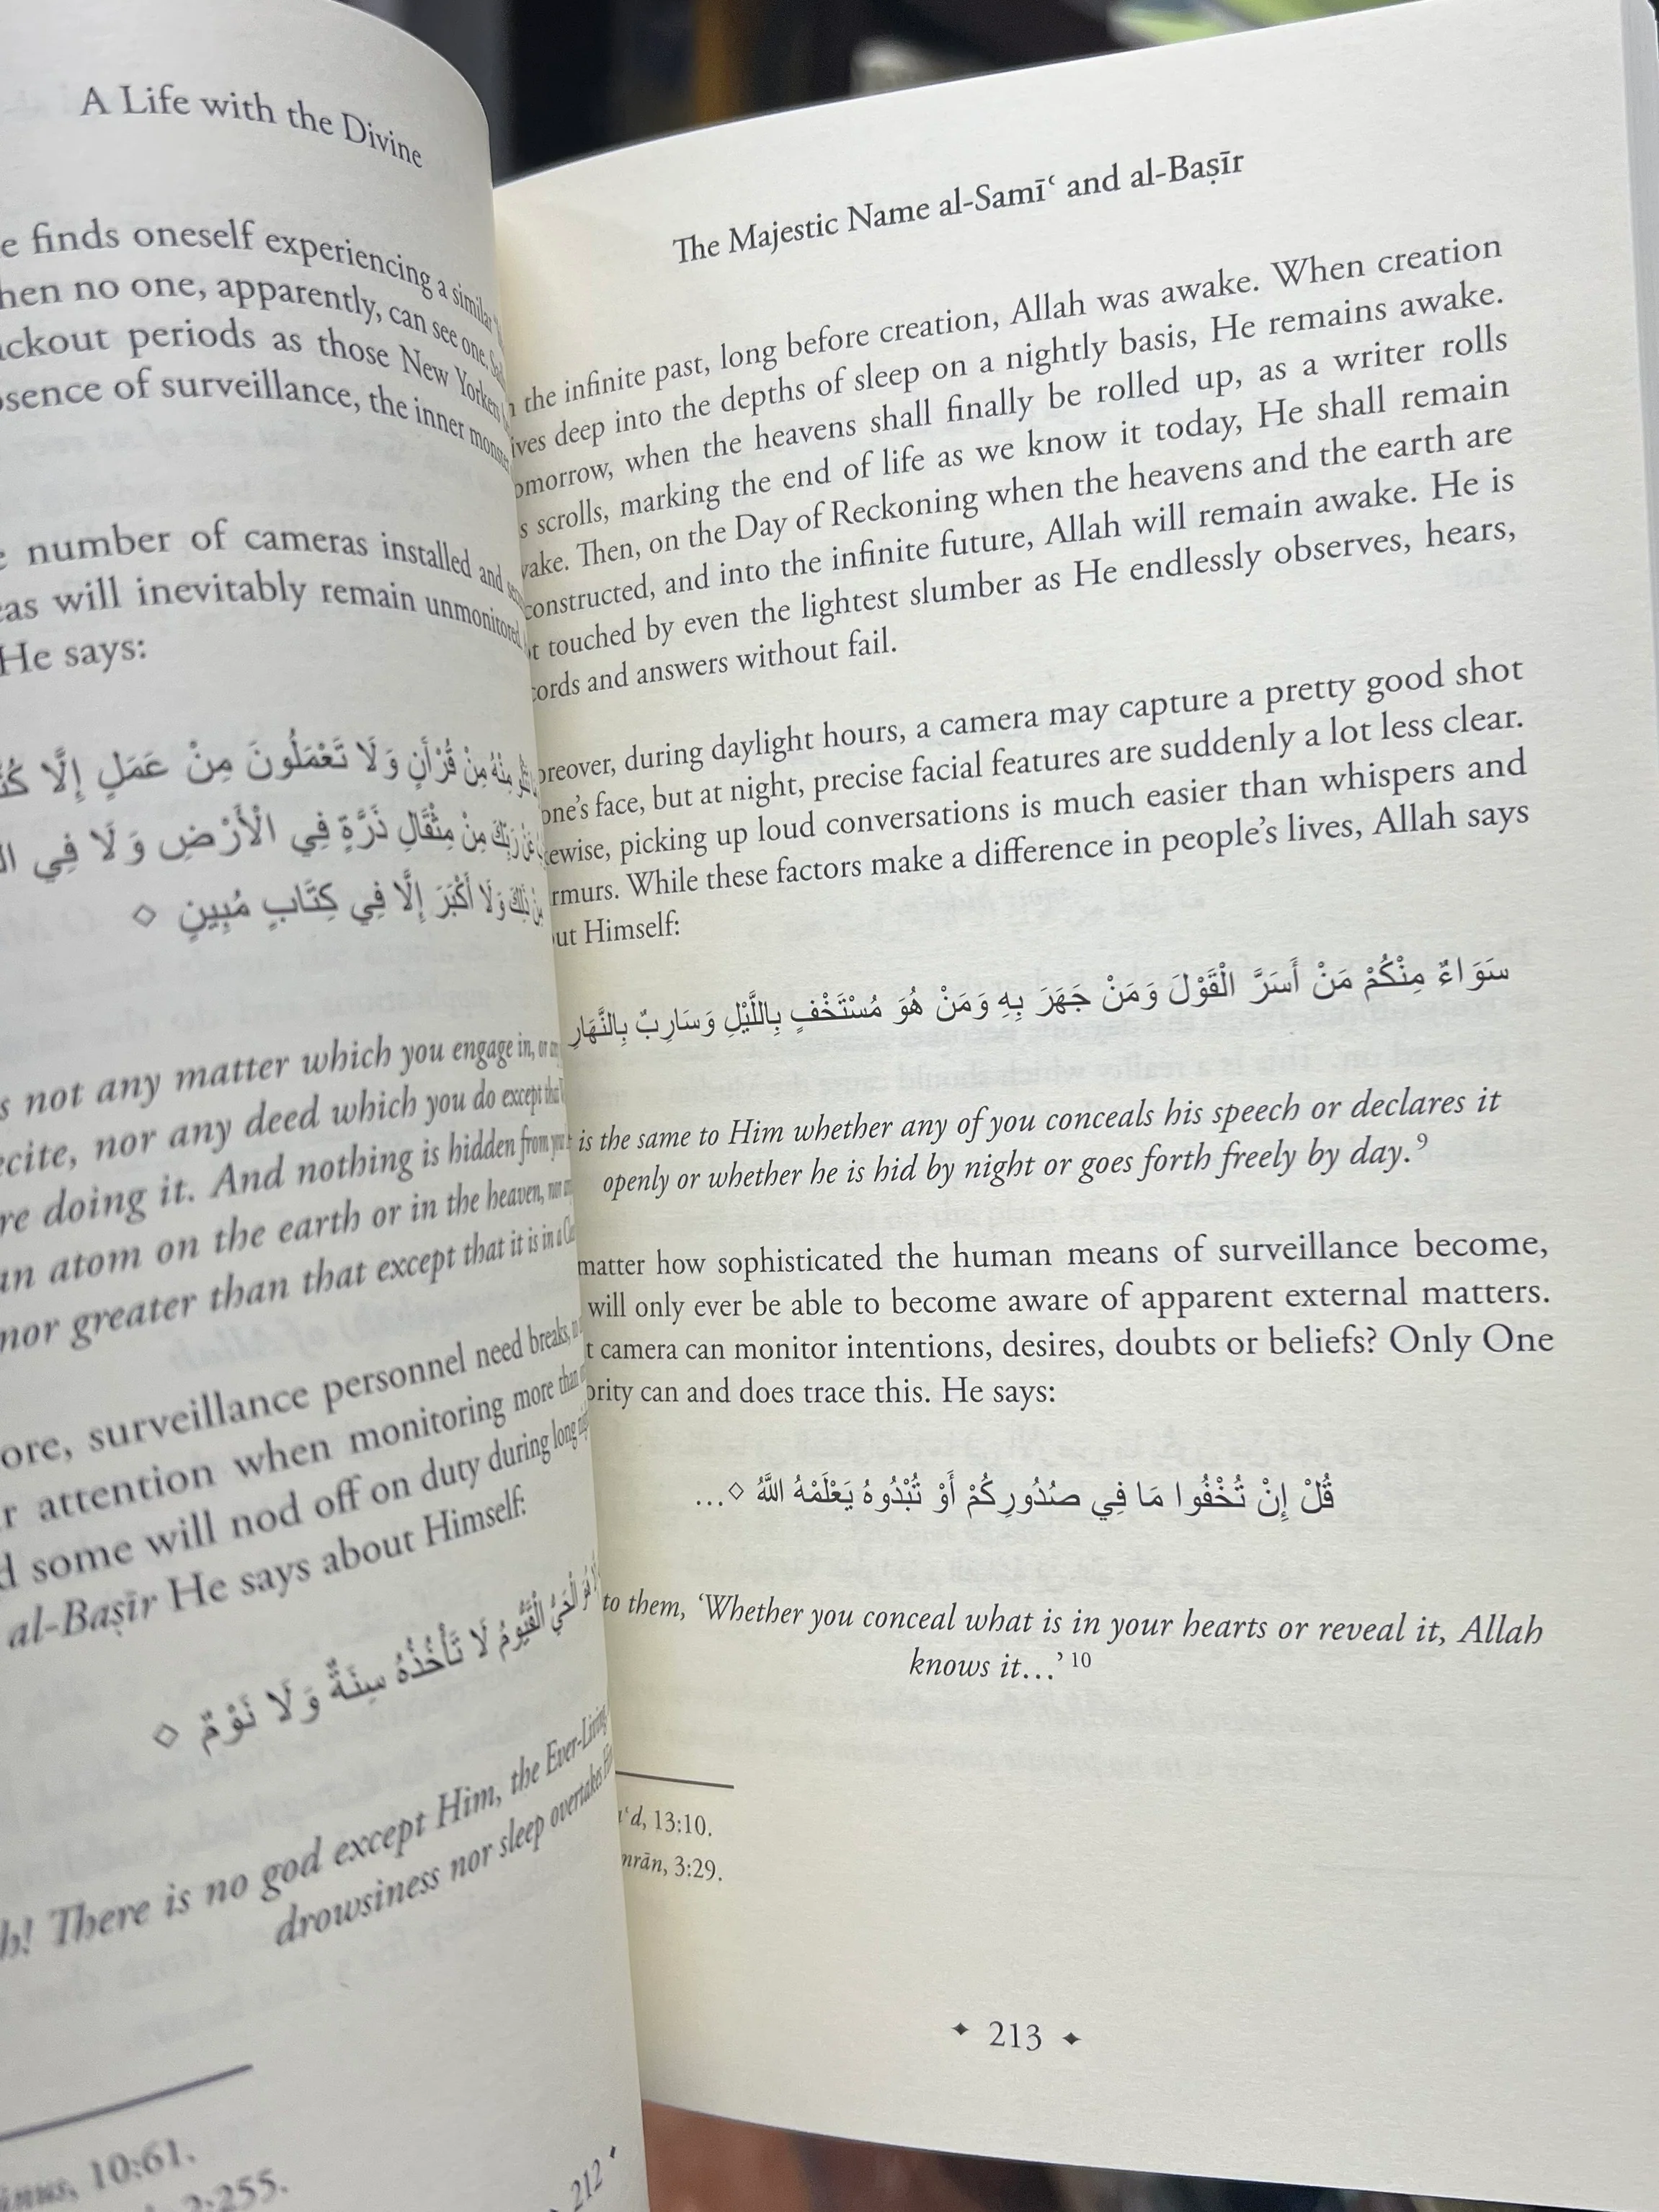 A Life with the Divine
finds oneself experiencing a similar
no one, apparently, can see one.
periods as those New Yorkers
of surveillance, the inner monster
number of cameras installed and
will inevitably remain unmonitored
He says:
مِنْهُ مِنْ قُرْآنٍ وَلَا تَعْمَلُونَ مِنْ عَمَلٍ إِلَّا
رَبِّكَ مِنْ مِثْقَالِ ذَرَّةٍ فِي الْأَرْضِ وَلَا فِي
ذَلِكَ وَلَا أَكْبَرَ إِلَّا فِي كِتَابٍ مُبِينٍ ◇
not any matter which you engage in, or
nor any deed which you do except
doing it. And nothing is hidden from
atom on the earth or in the heaven, nor
nor greater than that except that it is in a
surveillance personnel need breaks,
attention when monitoring more than
some will nod off on duty during long
al-Baṣīr He says about Himself:
هُوَ الْحَيُّ الْقَيُّومُ لَا تَأْخُذُهُ سِنَةٌ وَلَا نَوْمٌ ◇
There is no god except Him, the Ever-Living,
drowsiness nor sleep overtakes
10:61.
2:255.
212
The Majestic Name al-Samīʿ and al-Baṣīr
the infinite past, long before creation, Allah was awake. When creation
deep into the depths of sleep on a nightly basis, He remains awake.
when the heavens shall finally be rolled up, as a writer rolls
scrolls, marking the end of life as we know it today, He shall remain
Then, on the Day of Reckoning when the heavens and the earth are
and into the infinite future, Allah will remain awake. He is
touched by even the lightest slumber as He endlessly observes, hears,
and answers without fail.
during daylight hours, a camera may capture a pretty good shot
one's face, but at night, precise facial features are suddenly a lot less clear.
picking up loud conversations is much easier than whispers and
While these factors make a difference in people's lives, Allah says
Himself:
سَوَاءٌ مِنْكُمْ مَنْ أَسَرَّ الْقَوْلَ وَمَنْ جَهَرَ بِهِ وَمَنْ هُوَ مُسْتَخْفٍ بِاللَّيْلِ وَسَارِبٌ بِالنَّهَارِ
is the same to Him whether any of you conceals his speech or declares it
openly or whether he is hid by night or goes forth freely by day.⁹
matter how sophisticated the human means of surveillance become,
will only ever be able to become aware of apparent external matters.
camera can monitor intentions, desires, doubts or beliefs? Only One
can and does trace this. He says:
قُلْ إِنْ تُخْفُوا مَا فِي صُدُورِكُمْ أَوْ تُبْدُوهُ يَعْلَمْهُ اللَّهُ ◇...
to them, ‘Whether you conceal what is in your hearts or reveal it, Allah
knows it...’ ¹⁰
13:10.
3:29.
213